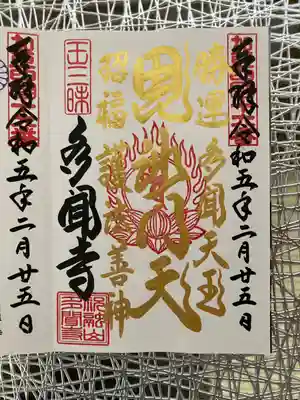 奉拝 令和五年二月廿五日
勝運 多聞天王
毘沙門天
招福 護法善神
王三昧
多聞寺
奉拝 令和五年二月廿五日